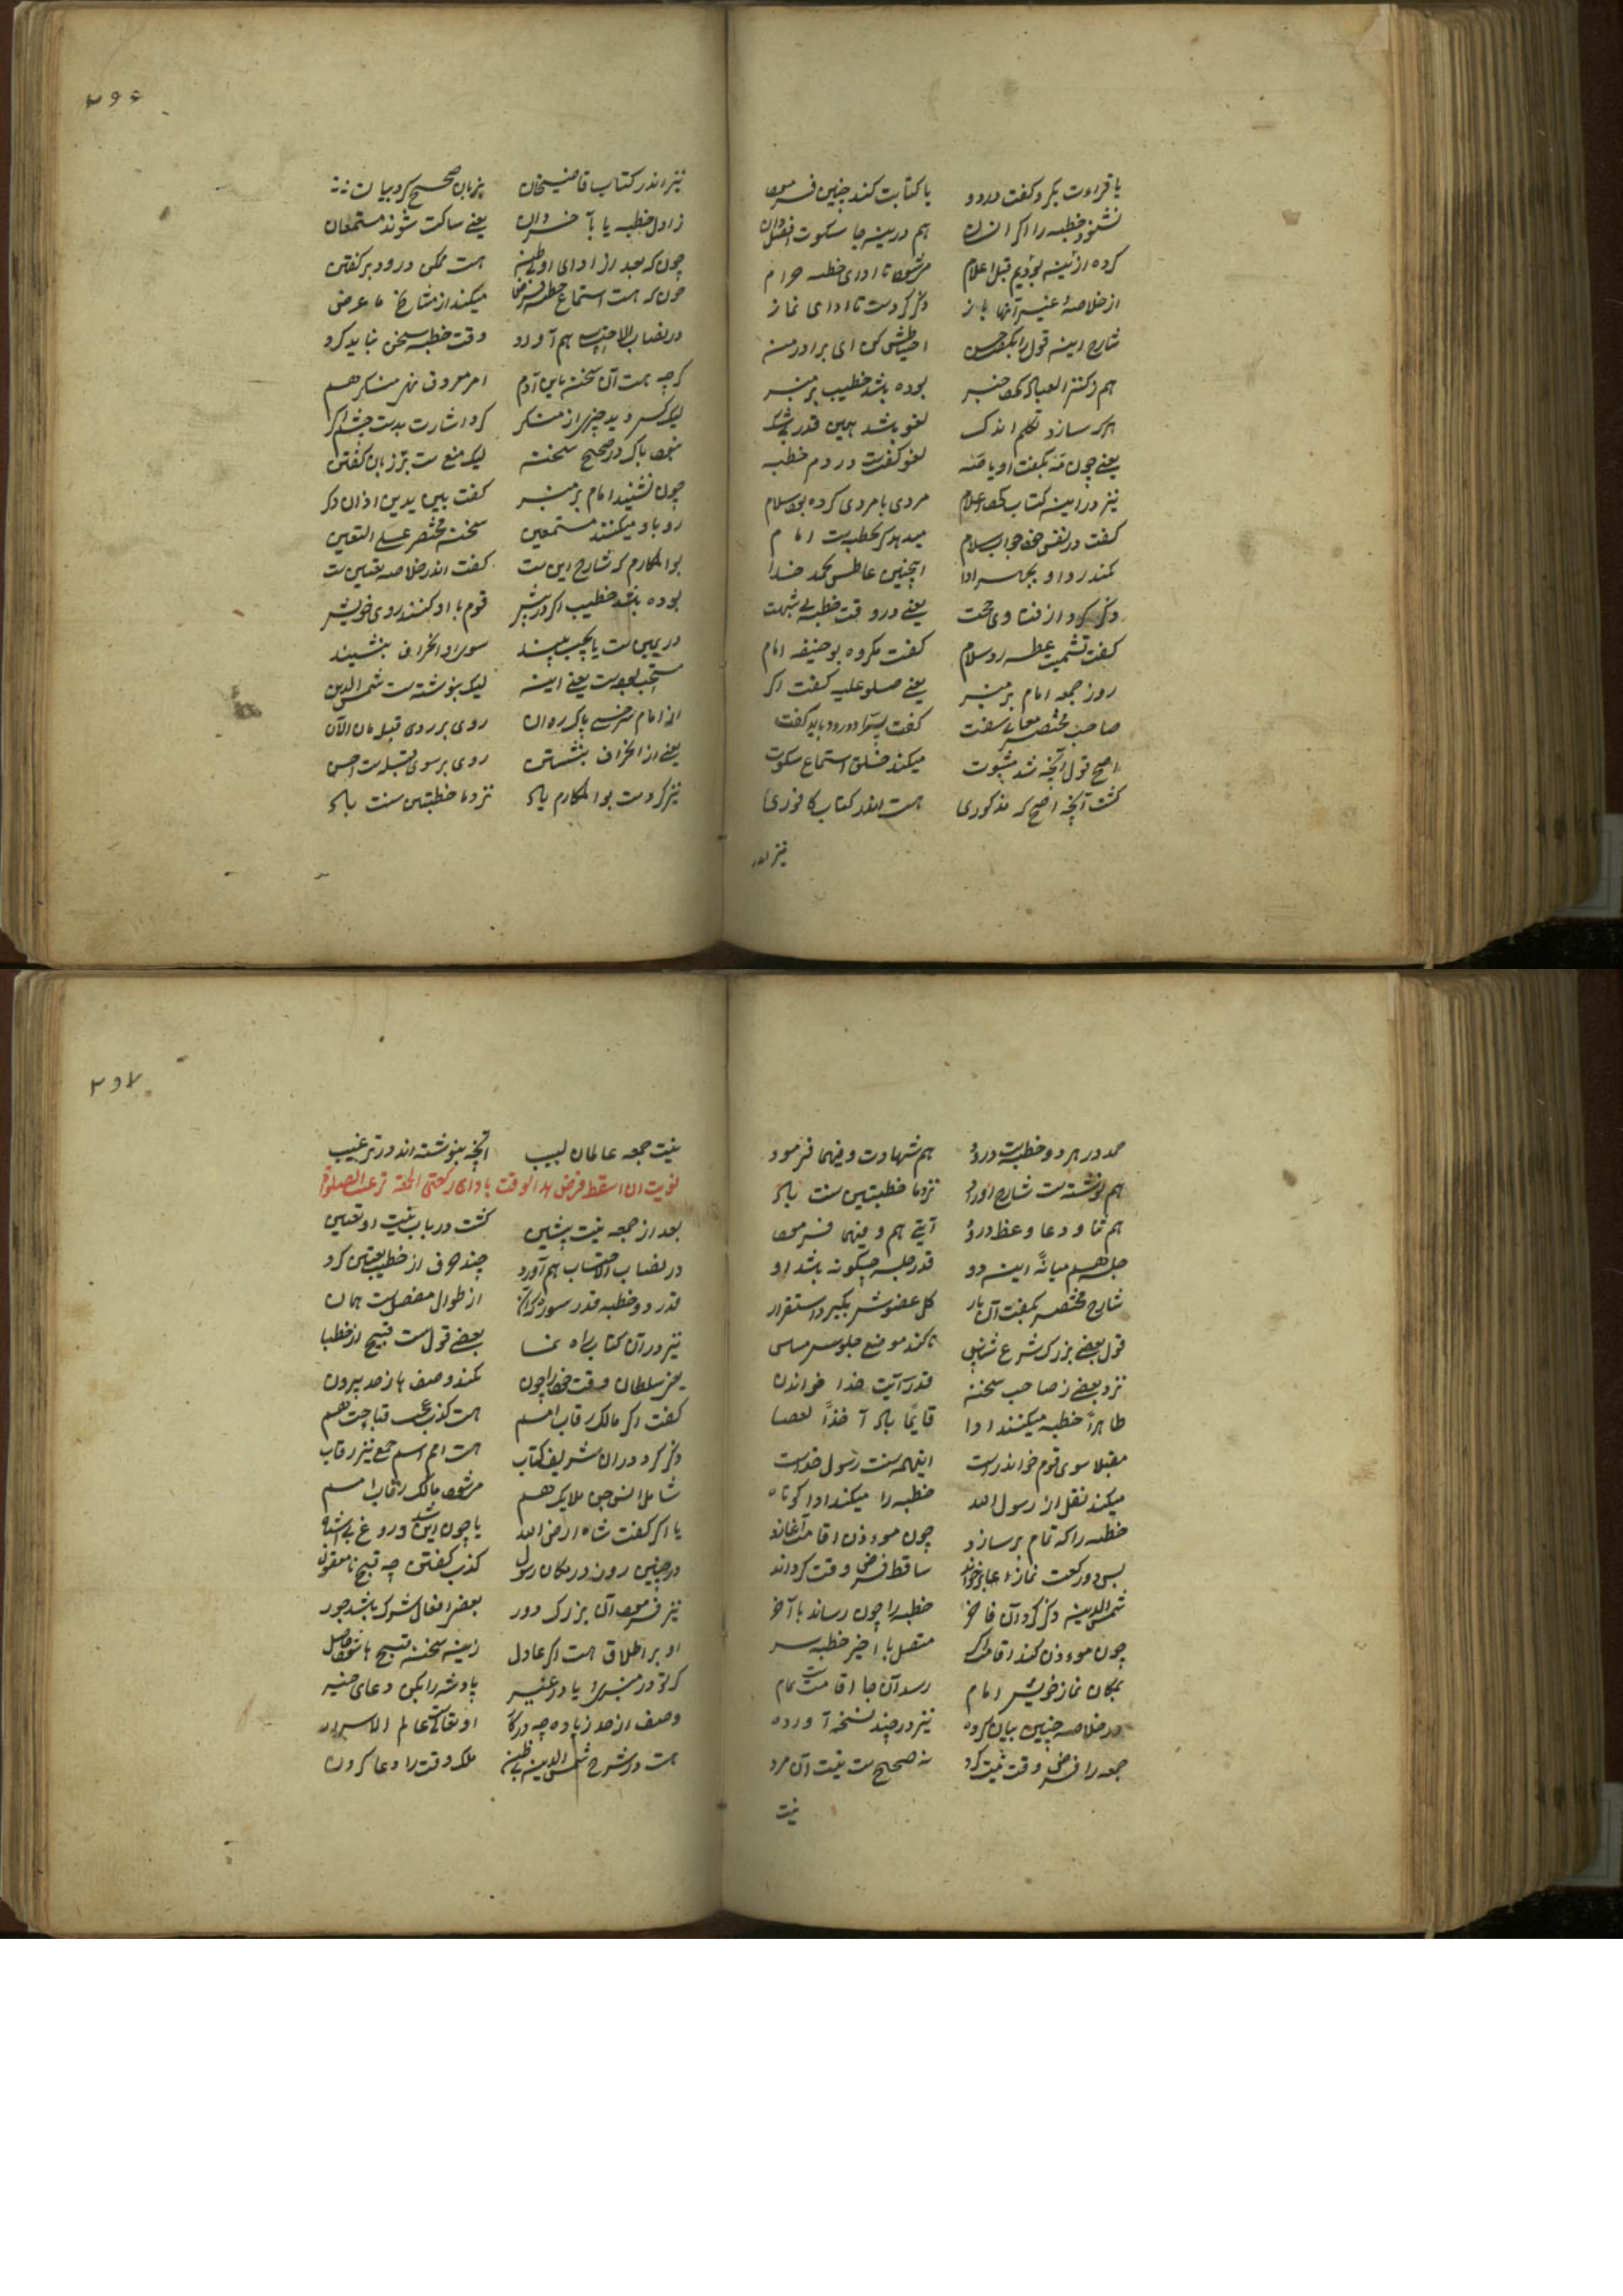 یا قراءت بکرد کفت درود یا کتابت کند چنین فرمود
نشنود خطبه را اکر انسان هم درینجا سکوت افضل دان
کرده ازینه بودیم قبل اعلام مر شود تا ادای خطبه حرام
از خلاصه غیر آنها باز ذکر کردست تا ادای نماز
شارح اینه قول را بکفت حسن احتیاطش کن ای برادر من
هم در کنز العباد خبر بوده باشد خطیب بر منبر
هرکه سازد تکلم اندک لغو باشد همین قدر بیشک
یعنی چون مه بکفت او یا صه لغو کفتست در دم خطبه
نیز در اینه کتاب کرد اعلام مردی با مردی کرده بود سلام
کفت در نفس خود جواب سلام میدهد کر بخطبه است امام
نکند رد او بجهر ادا اینچنین عاطس بحمد خدا
ذکر کرد از فتاوی حجت یعنی در وقت خطبه بی شبهت
کفت تشمیت عطسه رد سلام کفت مکروه بو حنیفه امام
روز جمعه امام بر منبر یعنی صلو علیه کفت اکر
صاحب مختصر معانی سفت کفت سرا درود باید کفت
اصح قول آنچه شد مثبوت میکند خلق استماع سکوت
کشت آنچه اصح که مذکوری هست اندر کتاب کافوری
نیز اندر
۲۹۶
نیز اندر کتاب قاضیخان بزبان صحیح کرد بیان
ز اول خطبه یا بآخر دان یعنی ساکت شوند مستمعان
چون که بعد از ادای اولی هست ممکن درود بر کفتن
چون که هست استماع خطبه فرض میکند از مشایخ ما عرض
در نصاب الاحتساب هم آورد وقت خطبه سخن نباید کرد
کرچه هست آن سخن امر معروف نهی منکر هم
لیک کس دید چیزی از منکر کرد اشارت بدست چشم اکر
نبود باک در صحیح سخن لیک منع ست بر زبان کفتن
چون نشیند امام بر منبر کفت بین یدین اذان دکر
رو باو میکنند مستمعین سخن مختصر علی التعین
بو المکارم که شارح این ست کفت اندر خلاصه تعیین ست
بوده باشد خطیب اکر در پیش قوم با او کنند روی خویش
در یمین ست یا بچپ بیند سوی او انحراف بنشیند
مستحب بودست یعنی اینه لیک بنوشته ست شمس الدین
از امام سرخسی پاک روان روی بر روی قبله مان الآن
یعنی از انحراف بنشستن روی بر سوی قبله ست احسن
نیز کردست بو المکارم یاد نزد ما خطبتین سنت باد
حمد در هر دو خطبه است درو هم شهادت و فیهما فرمود
هم نوشته ست شارح اوراد نزد ما خطبتین سنت باد
هم ثنا و دعا و عظ درو آیتی هم و فیهما فرمود
جلسه هم میانه اینه دو قدر جلسه چکونه باشد او
شارح مختصر بکفت آن بار کل عضوش بکیرد استقرار
قول بعضی بزرک شرع شناس تا کند موضع جلوس مساس
نزد بعضی ز صاحب سخن قدر آیت خدا خواندن
طاهراً خطبه میکنند ادا قایما باد آخذا لعصا
مقبلا سوی قوم خواند راست اینهمه سنت رسول خداست
میکند نقل از رسول الله خطبه را میکند ادا کوتاه
خطبه را که تمام بر سازد چون موءذن اقامت آغازد
پس دو رکعت نماز ساقط فرض وقت کرداند
شمس الدینه ذکر کرد آن فاخر خطبه را چون رساند بآخر
چون موءذن کند اقامت متصل با اخیر خطبه سر
بمکان نماز خویش امام رسد آن جا اقامت تمام
در خلاصه چنین بیان کرده نیز در چند نسخه آورده
جمعه را فرض وقت نیت کرد نه صحیح ست نیت آن مرد
نیت
۲۹۷
نیت جمعه عالمان لبیب آنچه بنوشته اند در ترغیب
نویت ان اسقط فرض هذا الوقت باداء رکعتی الجمعة ترغیب الصلوة
بعد از جمعه نیت پیشین کشت در باب نیت او تعیین
در نصاب الاحتساب هم آورد چند حرف از خطیب تعیین کرد
قدر دو خطبه قدر سوره از طوال مفصل ست همان
نیز در آن کتاب راه نما بعضی قول ست قبیح از خطبا
یعنی سلطان وقت خود را چون نکند وصف ها ز حد بیرون
کفت اکر مالک رقاب امم هست کذب قباحت هم
ذکر کرد در ان شریف کتاب هست امم اسم جمع نیز رقاب
شامل انس جن ملایک هم مر شود مالک رقاب امم
یا اکر کفت شاه ارض الله یا چون این شد دروغ بی اشباه
در چنین روز در مکان رسول کذب کفتن چه قبیح نامعقول
نیز فرمود آن بزرک دور بعض افعال شرک باشد جور
او بر اطلاق هست اکر عادل زینه سخن قبیح ها حاصل
کر تو در منبر یا در غیر پادشه را بکن دعای خیر
وصف از حد زیاده چه در کار او تعالی ست عالم الاسرار
هست در شرح شمس الدین ملک وقت را دعا کردن